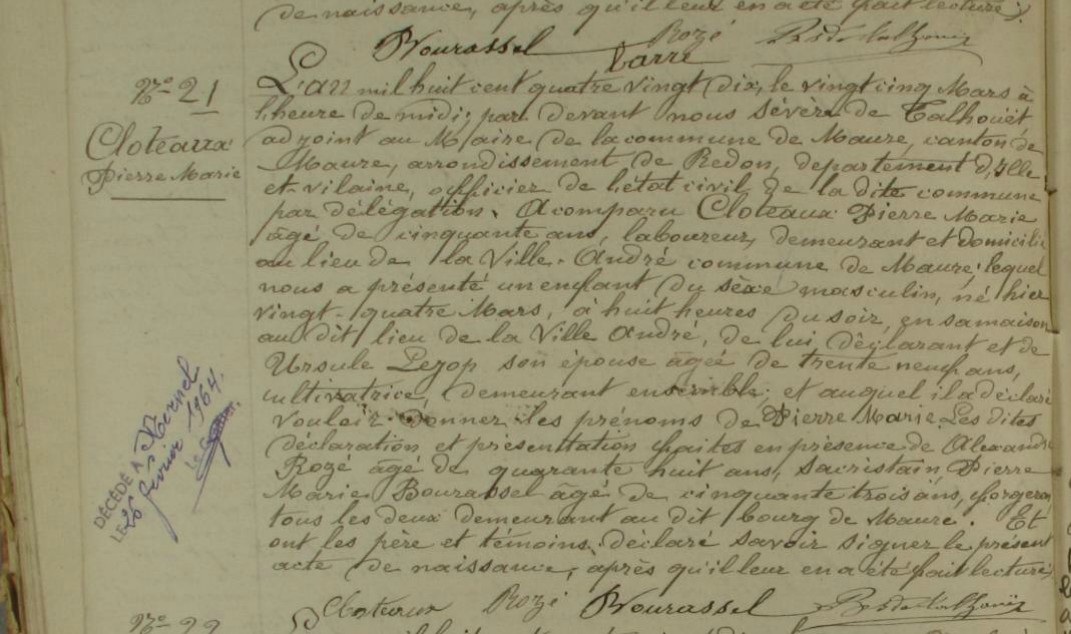 de naissance, après qu'il leur en a été fait lecture.
Bourassel Rozé
Barré
No 21
Cloteaux
Pierre Marie
L'an mil huit cent quatre vingt dix, le vingt cinq Mars à
l'heure de midi, par devant nous Sévère de Talhouët
adjoint au Maire de la commune de Maure, canton de
Maure, arrondissement de Redon, département d'Ille
et-vilaine, officier de l'état civil de la dite commune
par délégation, A comparu Cloteaux Pierre Marie
âgé de cinquante ans, laboureur, demeurant et domicilié
au lieu de la Ville-André commune de Maure, lequel
nous a présenté un enfant du sèxe masculin, né hier
vingt-quatre Mars, à huit heures du soir, en sa maison
au dit lieu de la Ville André, de lui déclarant et de
Ursule son épouse âgée de trente neuf ans,
cultivatrice, demeurant ensemble; et auquel il a déclaré
vouloir donner les prénoms de Pierre Marie Les dites
déclaration et présentation faites en présence de Alexandre
Rozé âgé de quarante huit ans, Sacristain Pierre
Marie Bourassel âgé de cinquante trois ans, forgeron
tous les deux demeurant au dit bourg de Maure. Et
ont les père et témoins déclaré savoir signer le présent
acte de naissance, après qu'il leur en a été fait lecture
DÉCÉDÉ A
LE 26 février 1964.
Le
Cloteaux Rozé Bourassel
No 22